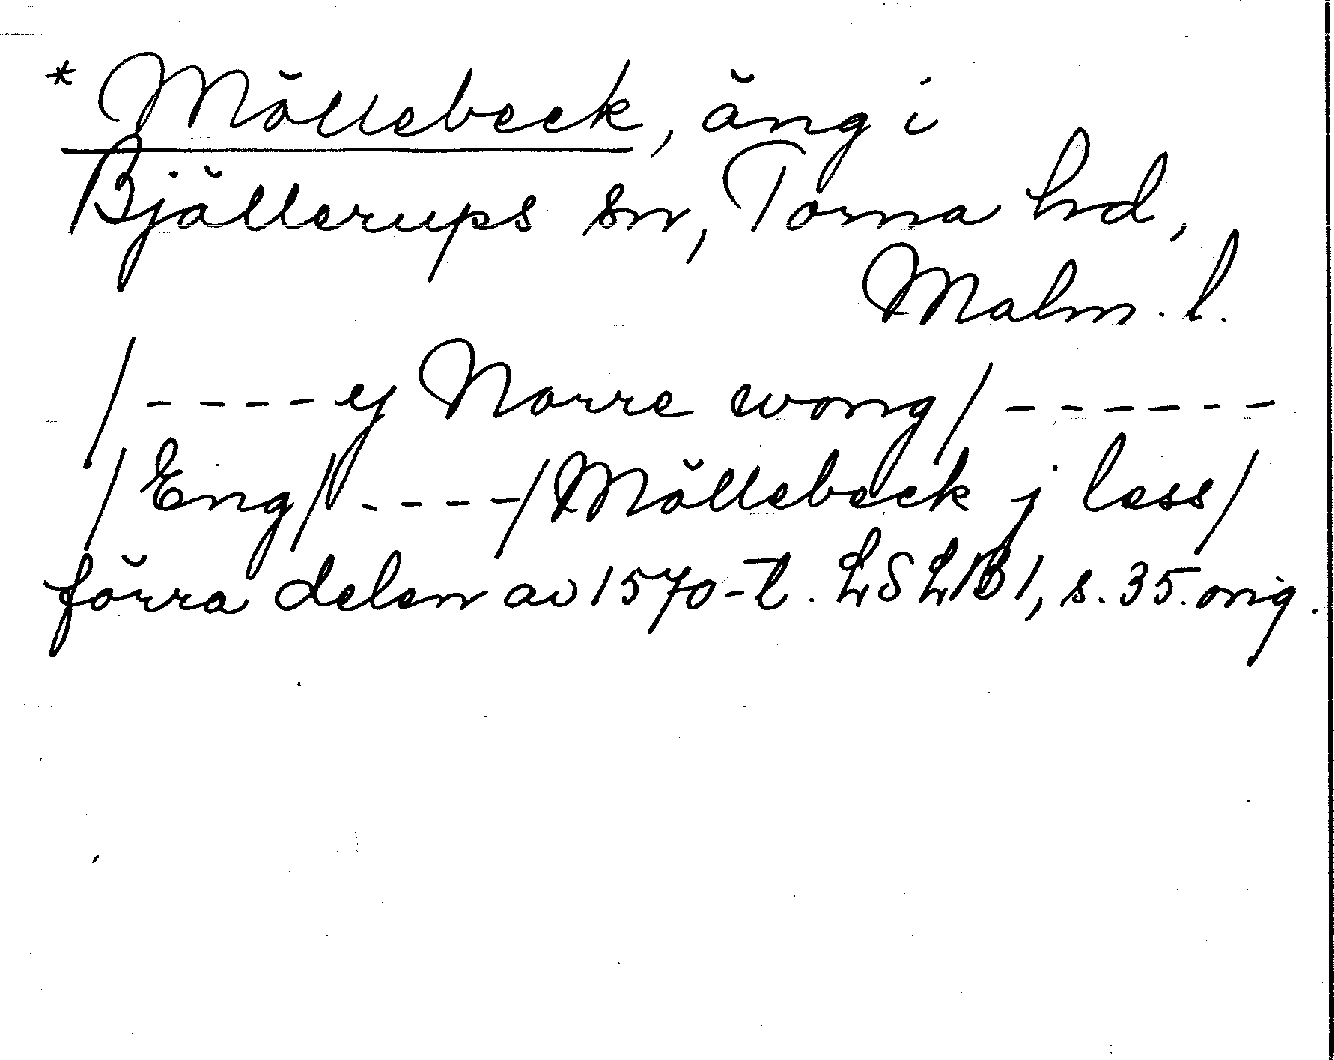 *Möllebeck, äng i
Bjällerups sn, Torna hd,
Malm. l.
/----y Norre wong/------
/Eng/----/Möllebeck j less/
förra delen av 1570-t. LSLB1, s. 35 orig.